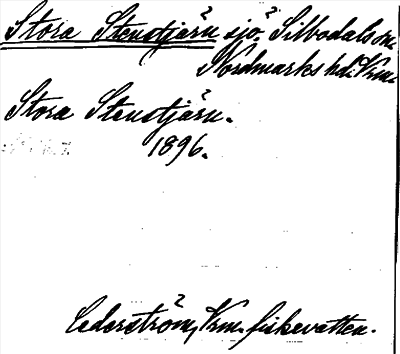 Stora Stenstjärn sjö. Silbodals sn.
Nordmarks hd. Vrm.
Stora Stenstjärn.
1896.
Cederström, Vrm. fiskevatten.